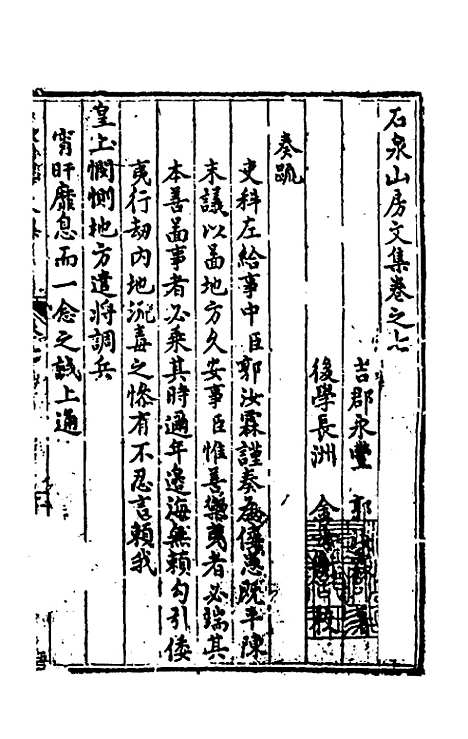 石泉山房文集卷之七
吉郡永豐 郭
後學長洲 金
奏疏
吏科左給事中臣郭汝霖謹奏為倭患既平陳
末議以圖地方久安事臣惟善禦夷者必端其
本善圖事者必乘其時邇年邊海無賴勾引倭
夷行劫內地流毒之慘有不忍言賴我
皇上憫惻地方遣將調兵
宵旰靡息而一念之誠上通